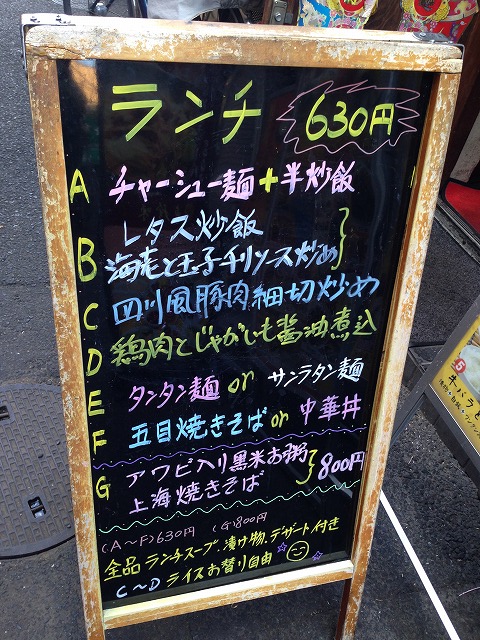 ランチ 630円
A チャーシュー麺+半炒飯
B レタス炒飯
海老と玉子チリソース炒め
C 四川風豚肉細切炒め
D 鶏肉とじゃがいも醤油煮込
E タンタン麺 or サンラタン麺
F 五目焼きそば or 中華丼
G アワビ入り黒米お粥
上海焼きそば 800円
(A〜F)630円 (G)800円
全品ランチスープ、漬け物、デザート付き
C〜D ライスお替り自由
牛バラ